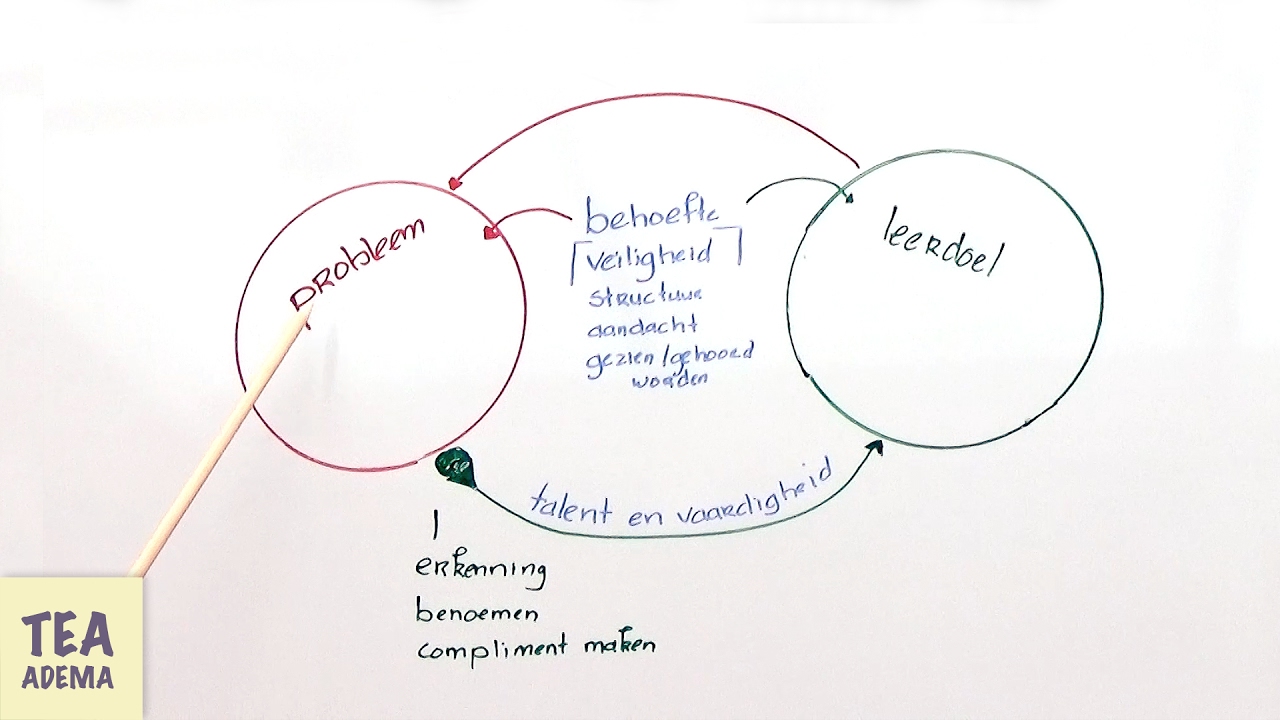 probleem
behoefte
veiligheid
structuur
aandacht
gezien/gehoord
worden
leerdoel
talent en vaardigheid
erkenning
benoemen
compliment maken
TEA
ADEMA